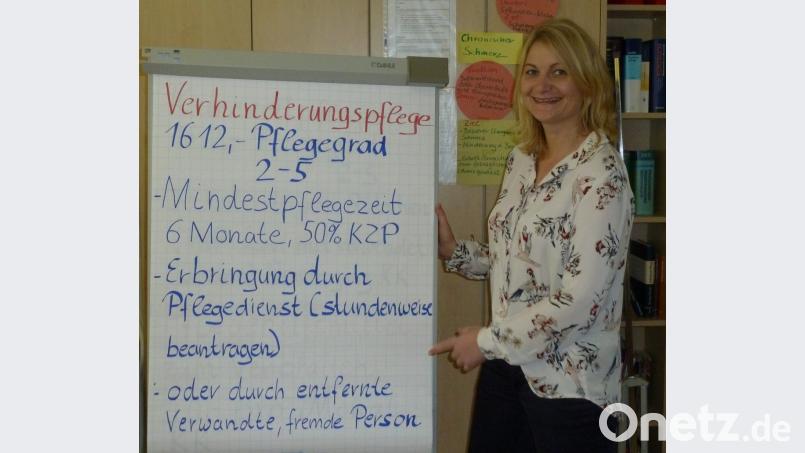 Chronischer
Schmerz
Ziel
DAHLE
Verhinderungspflege
1612,- Pflegegrad
2-5
- Mindestpflegezeit
6 Monate, 50% KZP
- Erbringung durch
Pflegedienst (stundenweise
beantragen)
- oder durch entfernte
Verwandte, fremde Person
Onetz.de